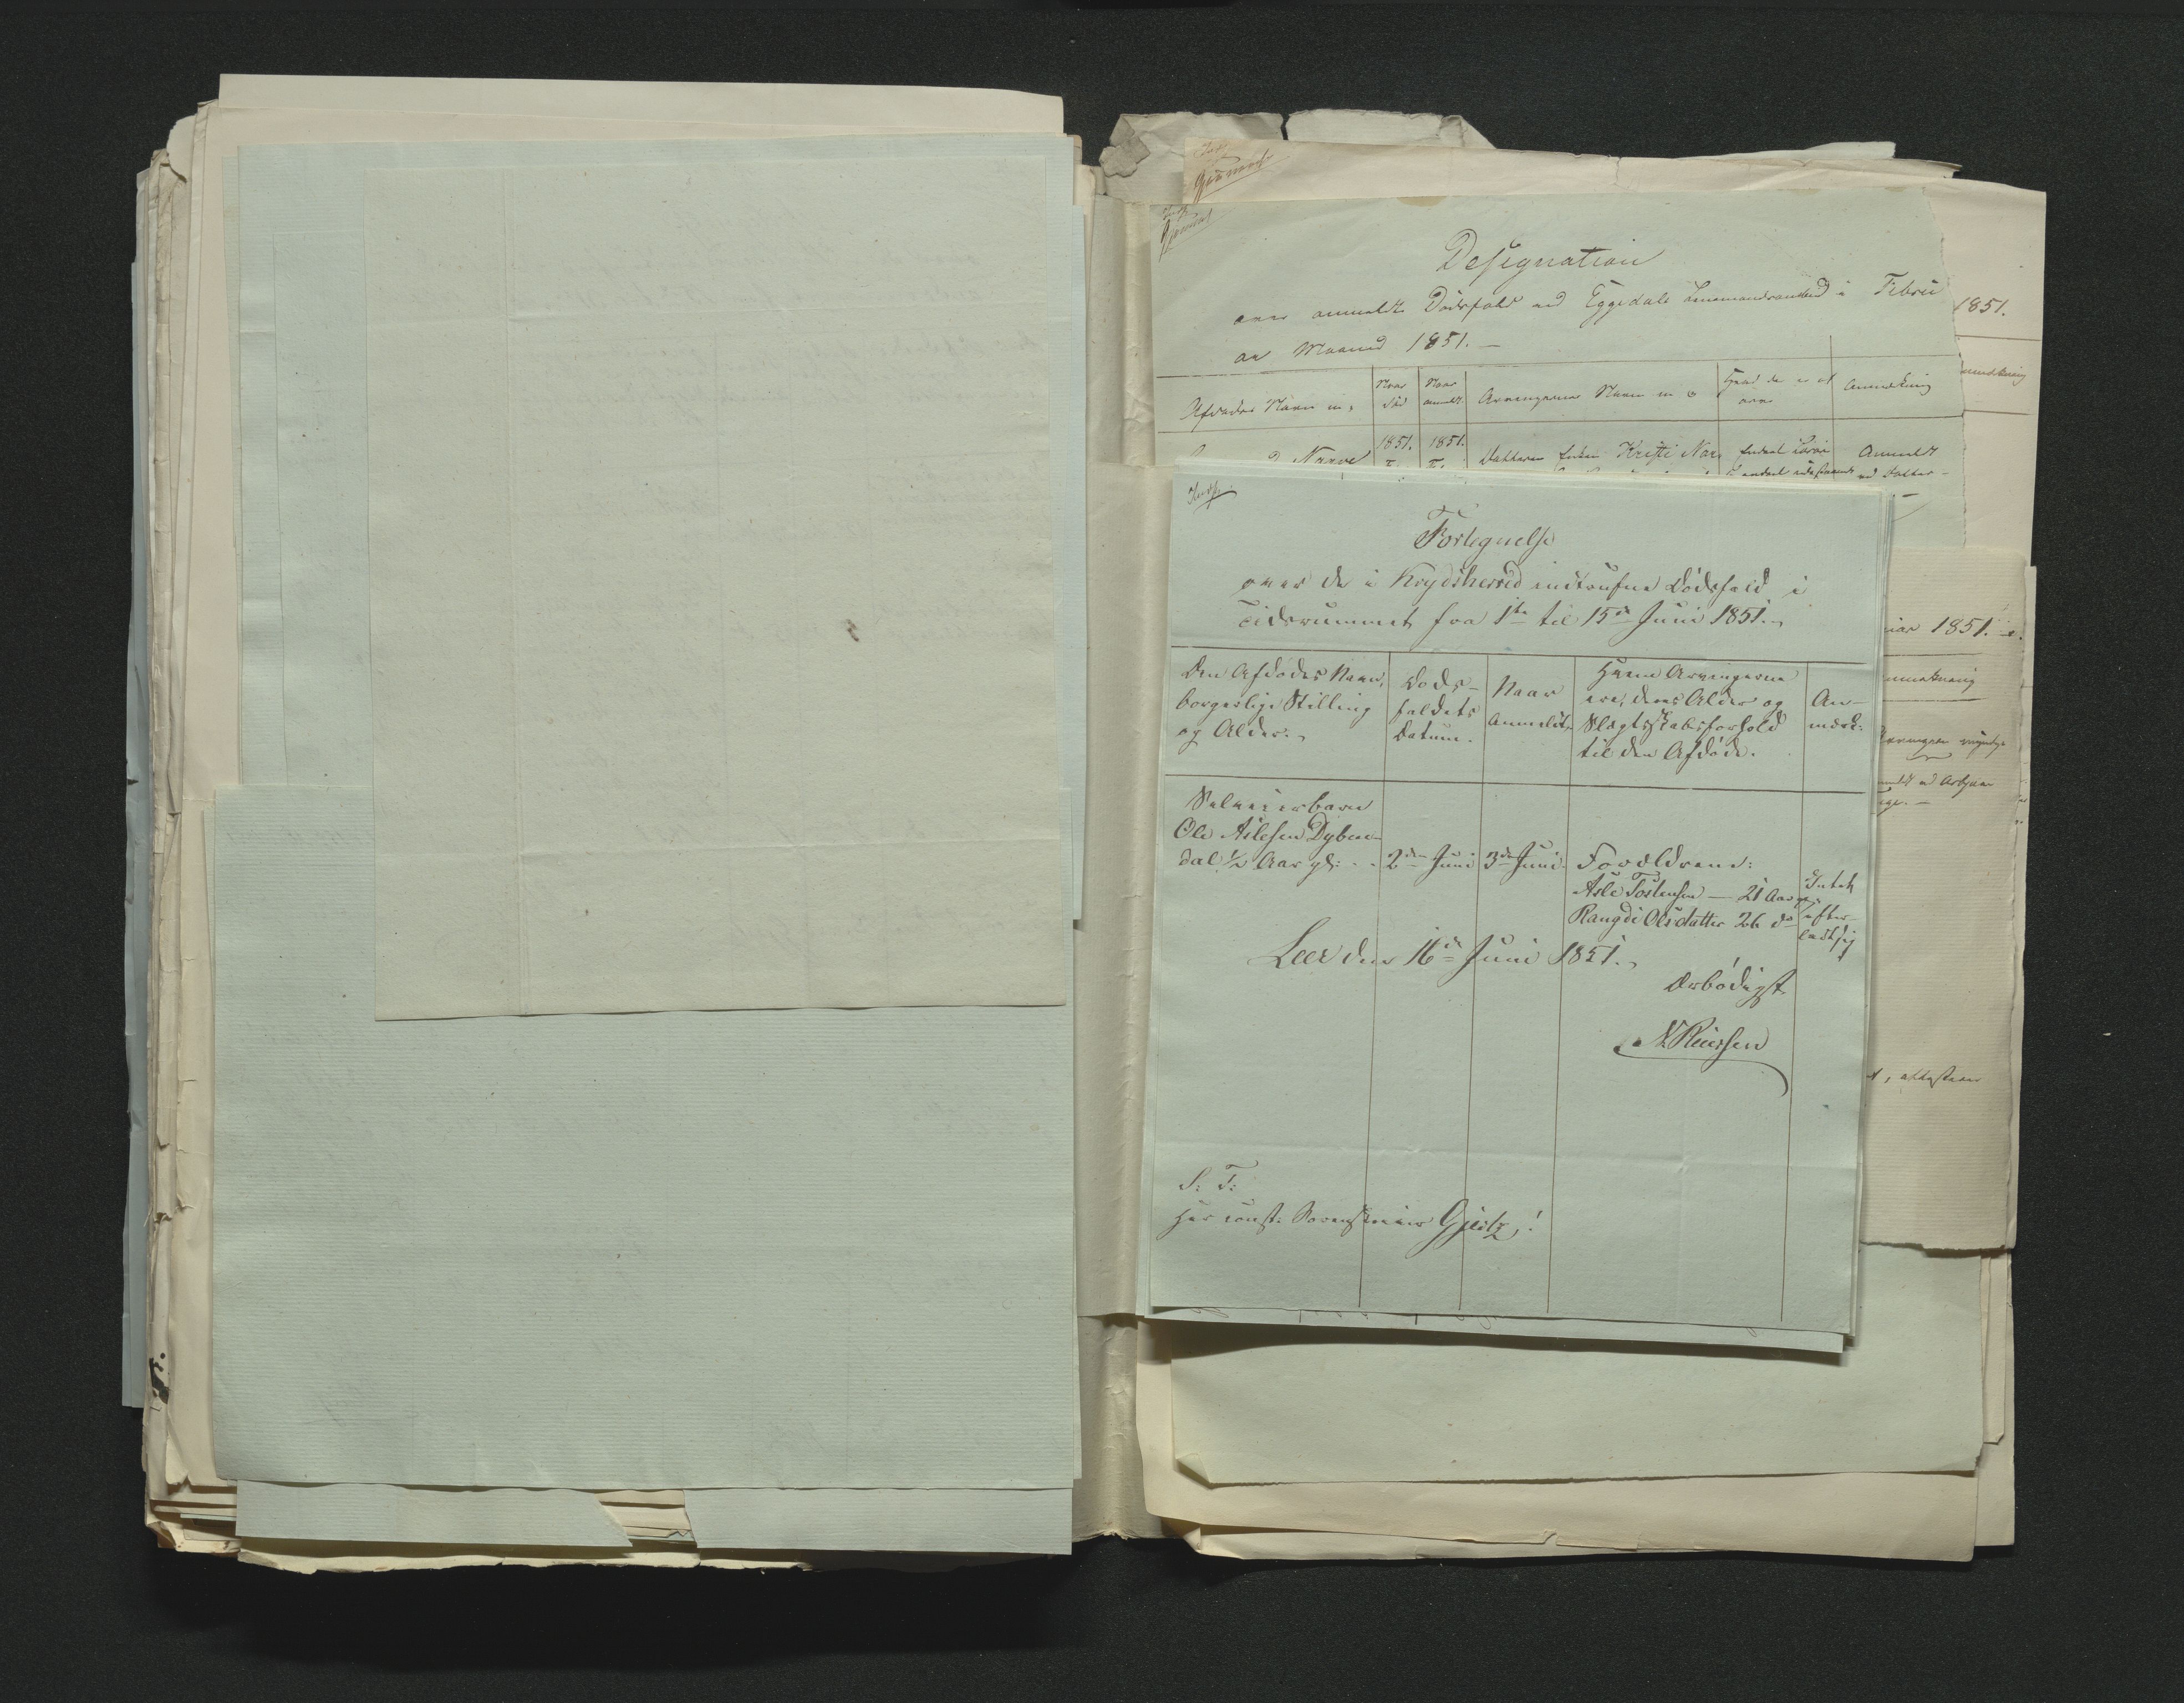 Designation
over anmeldte Dödsfald ved Eggedals Lensmandsombud i Febru
ar Maaned 1851. —
Afdödes Navn m,
Naar död
Naar anmeldt
Arvingernes Navn m v
Hvad der er at arve
Anmærkning
Narve
1851.
1851.
Datteren Enken Kristi Nar
Anmeldt
1851.
mærkning
uar 1851.
mærkning
Krydsh.
Fortegnelse
over de i Krydsherred indtrufne Dödsfald i
Tidsrummet fra 1ste til 15de Juni 1851.
Den Afdödes Navn,
borgerlige Stilling
og Alder.
Döds-
faldets
Datum.
Naar
Anmeldt.
Hvem Arvingerne
ere, deres Alder og
Slægtskabsforhold
til den Afdöde.
An-
mærk:
Selveierbarn
Ole Aslesen Dyben-
dal 1/2 Aar gl: - - 2den Juni 3de Juni. Forældrene:
Asle Tostensen — 21 Aar gl
Rangdi Olsdatter 26 do
Intet
efter-
ladt sig
Leer den 16de Juni 1851.
Ærbödigst
N Reiersen
S: T:
Herr const: Sorenskriver Gjertz,!